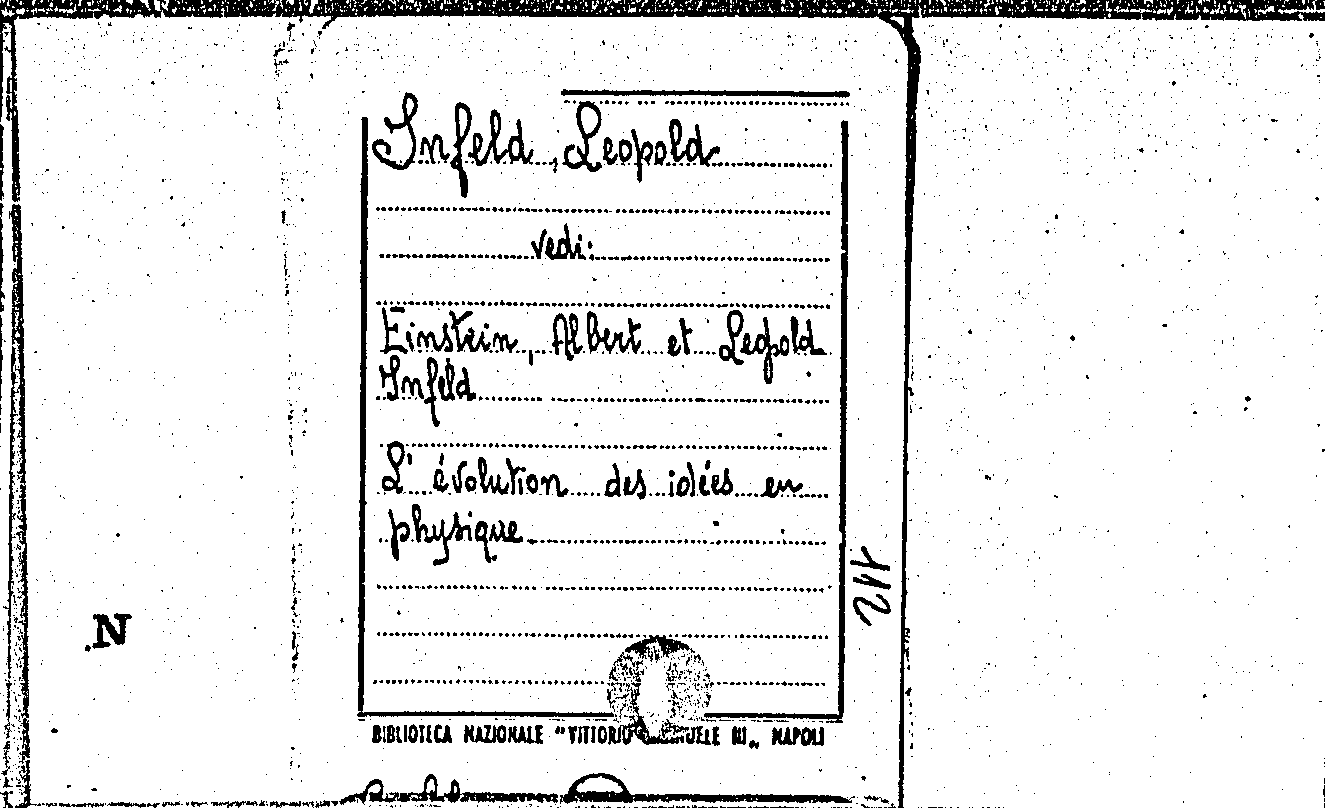 Infeld, Leopold
vedi:
Einstein, Albert et Leopold
Infeld
L'évolution des idées en
physique
112
N
BIBLIOTECA NAZIONALE "VITTORIO EMANUELE III„ NAPOLI